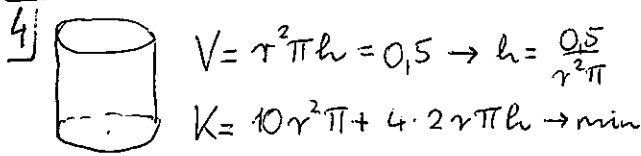 4
V = r²πh = 0,5 → h = 0,5/r²π
K = 10r²π + 4·2rπh → min